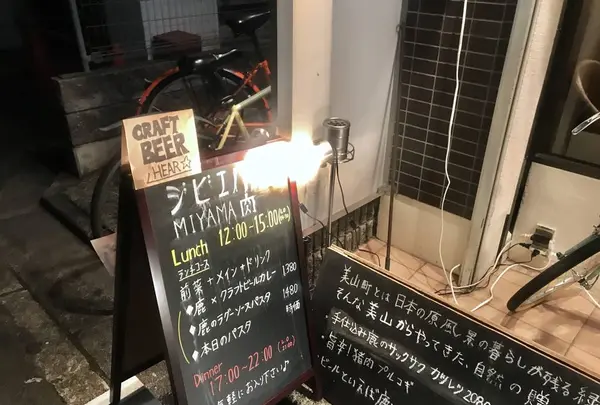 CRAFT
BEER
HEAR☆
ジビエ
MIYAMA 肉
Lunch 12:00-15:00
ランチコース
前菜+メイン+ドリンク
◆鹿×クラフトビールカレー 1380
◆鹿のラグーソースパスタ 1480
◆本日のパスタ 時価
Dinner
17:00-22:00
気軽にお入り下さい♪
美山町とは日本の原風景の暮らしが残る
そんな美山からやってきた、自然の贈
・手仕込み鹿のサックサクカツレツ 2080
・旨辛!猪肉プルコギ
・ビールといえば鹿